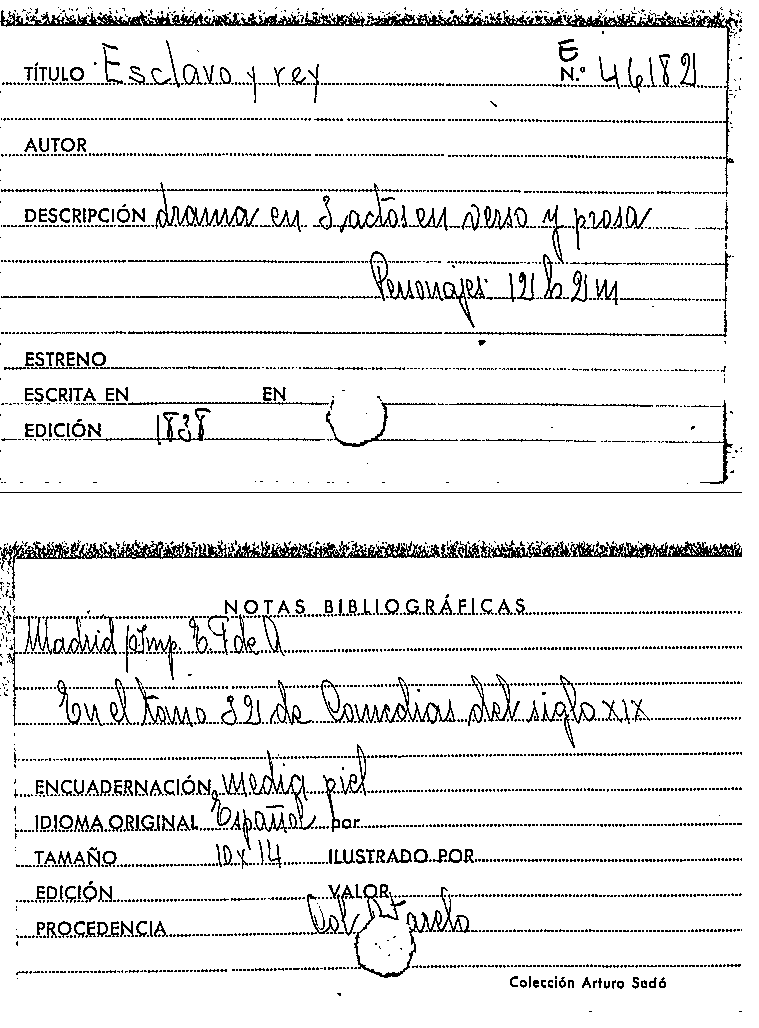 TÍTULO Esclavo y rey E N.º 46182
AUTOR
DESCRIPCIÓN drama en 3 actos en verso y prosa
Personajes: 12 h 2 m
ESTRENO
ESCRITA EN EN
EDICIÓN 1838
NOTAS BIBLIOGRÁFICAS
Madrid Imp.
En el tomo 32 de Comedias del siglo XIX
ENCUADERNACIÓN media piel
IDIOMA ORIGINAL Español por
TAMAÑO 10 x 14 ILUSTRADO POR
EDICIÓN VALOR
PROCEDENCIA Col.
Colección Arturo Sedó